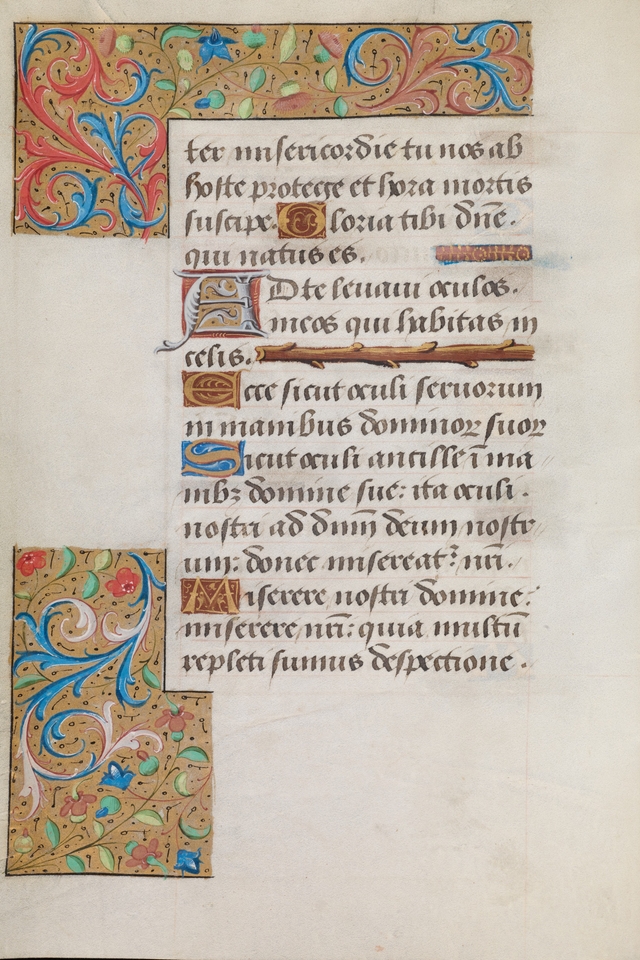 ter misericordie tu nos ab
hoste protege et hora mortis
suscipe. Gloria tibi dñe.
qui natus es.
AD te levavi oculos.
meos qui habitas in
celis.
Ecce sicut oculi servorum
in manibus dominoꝝ suoꝝ
Sicut oculi ancille ĩ ma
nibꝫ domine sue: ita oculi.
nostri ad dñm deum nostr
um: donec misereat᷑ nr̃i.
Miserere nostri domine:
miserere nr̃i: quia multũ
repleti sumus despectione.